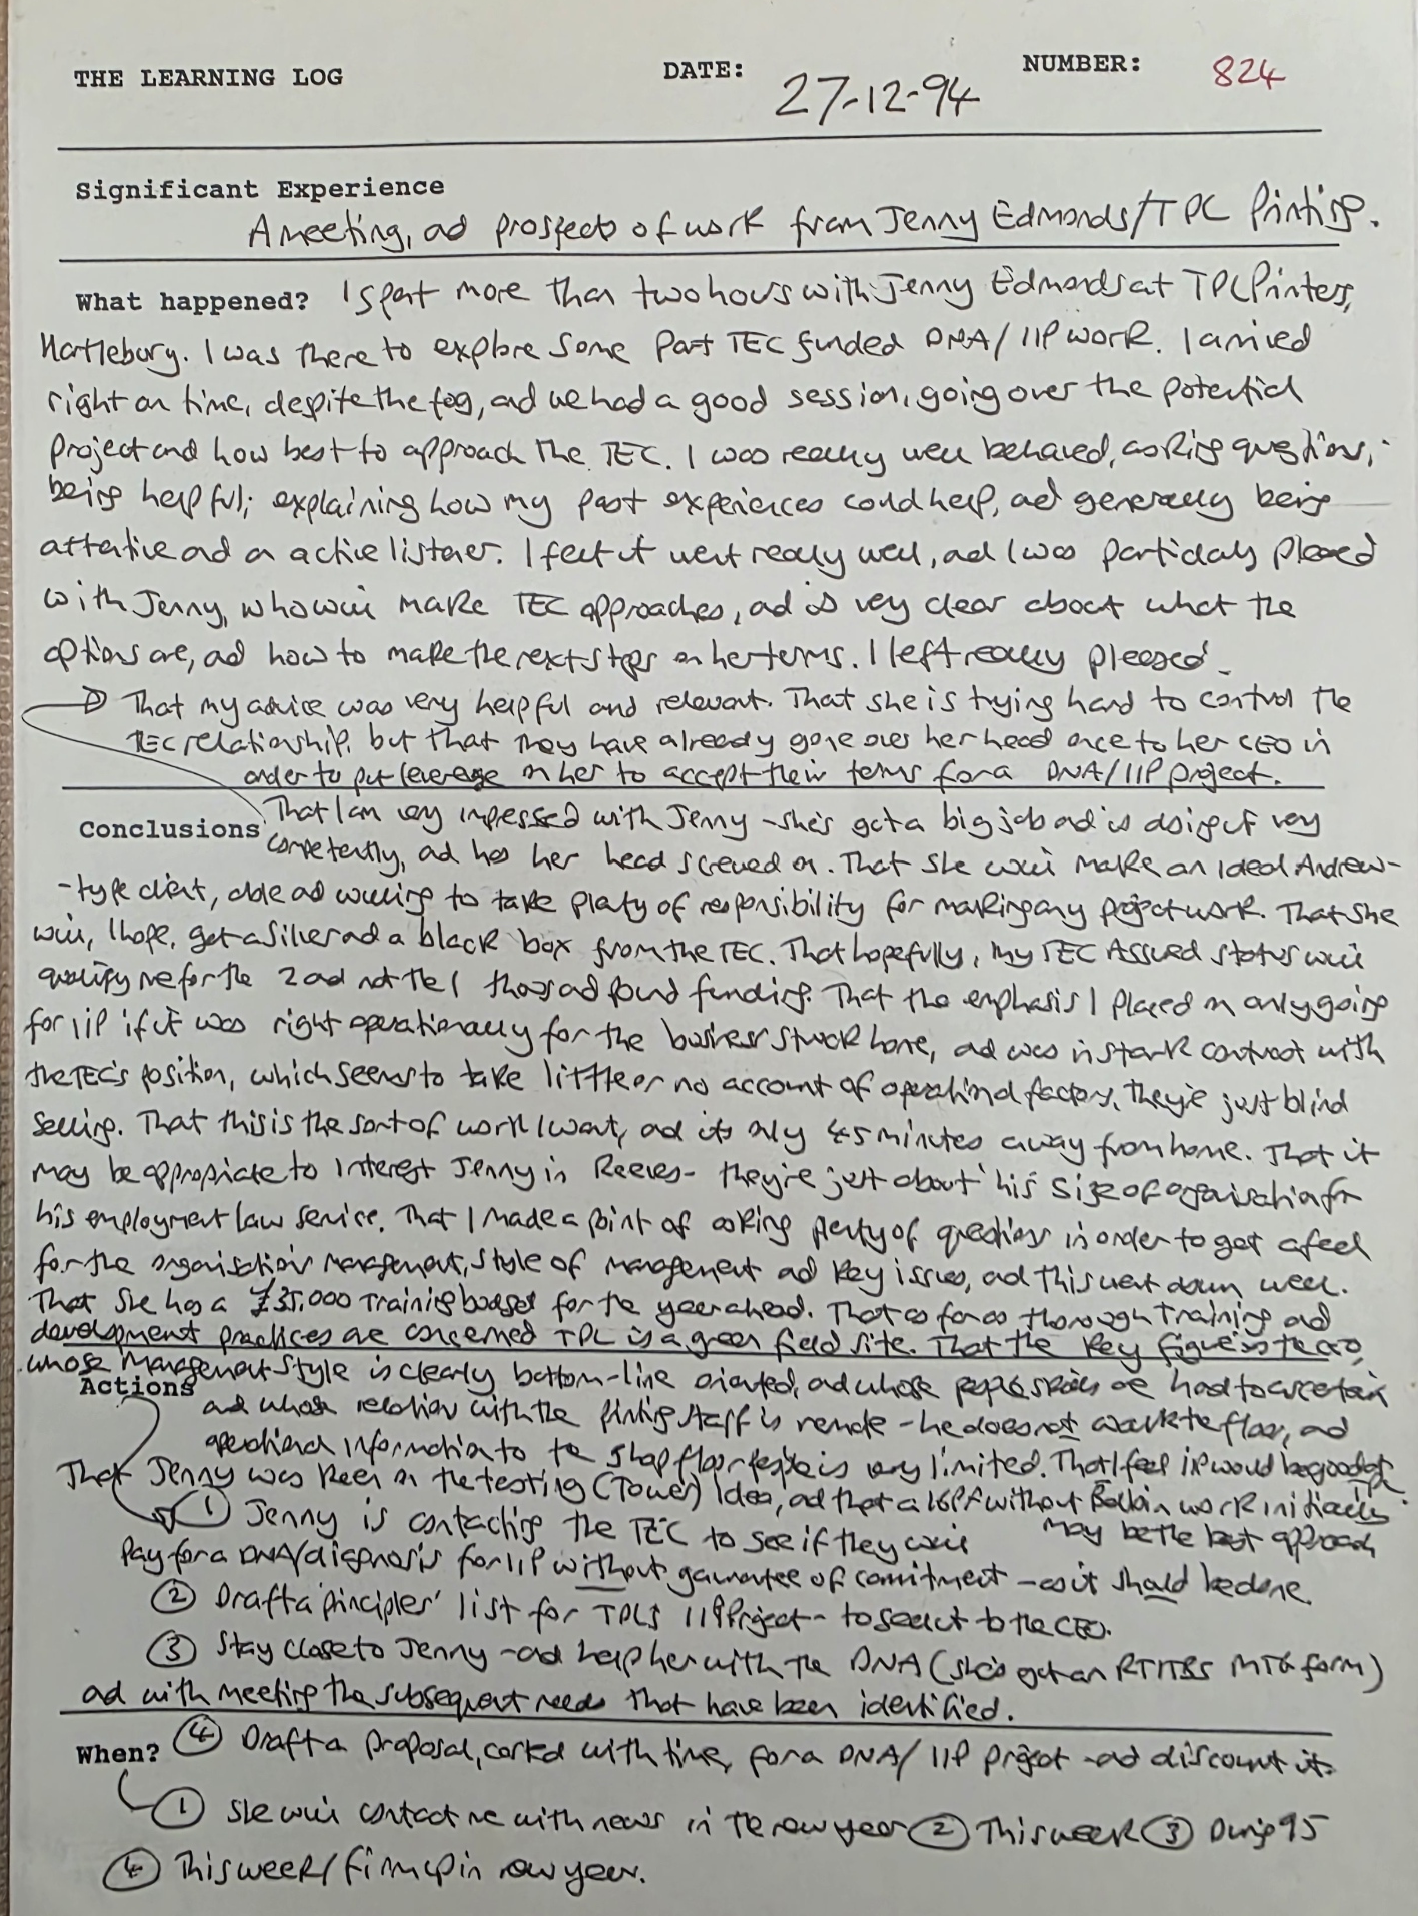 THE LEARNING LOG DATE: 27-12-94 NUMBER: 824
Significant Experience
A meeting, ad prospects of work from Jenny Edmonds/TPC Printing.
What happened? I spent more than two hours with Jenny Edmonds at TPL Printers,
Hartlebury. I was there to explore some part TEC funded DNA/IIP work. I arrived
right on time, despite the fog, and we had a good session, going over the potential
project and how best to approach the TEC. I was really well behaved, asking questions,
being helpful; explaining how my past experiences could help, and generally being
attentive and an active listener. I feel it went really well, and I was particularly pleased
with Jenny, who will make TEC approaches, and is very clear about what the
options are, and how to make the next steps on her terms. I left really pleased.
That my advice was very helpful and relevant. That she is trying hard to control the
TEC relationship, but that they have already gone over her head once to her CEO in
order to put leverage on her to accept their terms for a DNA/IIP project.
Conclusions That I am very impressed with Jenny - she's got a big job and is doing it very
competently, and has her head screwed on. That she will make an ideal Andrew-
-type client, able and willing to take plenty of responsibility for making any project work. That she
will, I hope, get a silver and a black box from the TEC. That hopefully, my TEC Assured status will
qualify me for the 2 and not the 1 thousand pound funding. That the emphasis I placed on only going
for IIP if it was right operationally for the business struck home, and was in stark contrast with
the TEC's position, which seems to take little or no account of operational factors, they're just blind
selling. That this is the sort of work I want, and its only 45 minutes away from home. That it
may be appropriate to interest Jenny in Reeves - they're just about 'his' size of organisation for
his employment law service. That I made a point of asking plenty of questions in order to get a feel
for the organisation's management, style of management and key issues, and this went down well.
That she has a £35,000 training budget for the year ahead. That as far as thorough training and
development practices are concerned TPL is a green field site. That the key figure is the CEO,
whose management style is clearly bottom-line oriented, and whose people skills are hard to ascertain
Actions and whose relation with the printing staff is remote - he does not walk the floor, and
operational information to the shop floor people is very limited. That I feel IIP would be good for
That Jenny was keen on the testing (Tower) idea, and that a 16PF without Belbin work initially
may be the best approach
① Jenny is contacting the TEC to see if they will
pay for a DNA/diagnosis for IIP without gaurantee of comitment - as it should be done.
② Draft a 'principles' list for TPL's IIP Project - to sell it to the CEO.
③ Stay close to Jenny - and help her with the DNA (she's got an RTITB's MTG form)
and with meeting the subsequent needs that have been identified.
When? ④ Draft a proposal, costed with time, for a DNA/IIP project - and discount it.
① She will contact me with news in the new year ② This week ③ During 95
④ This week/firm up in new year.